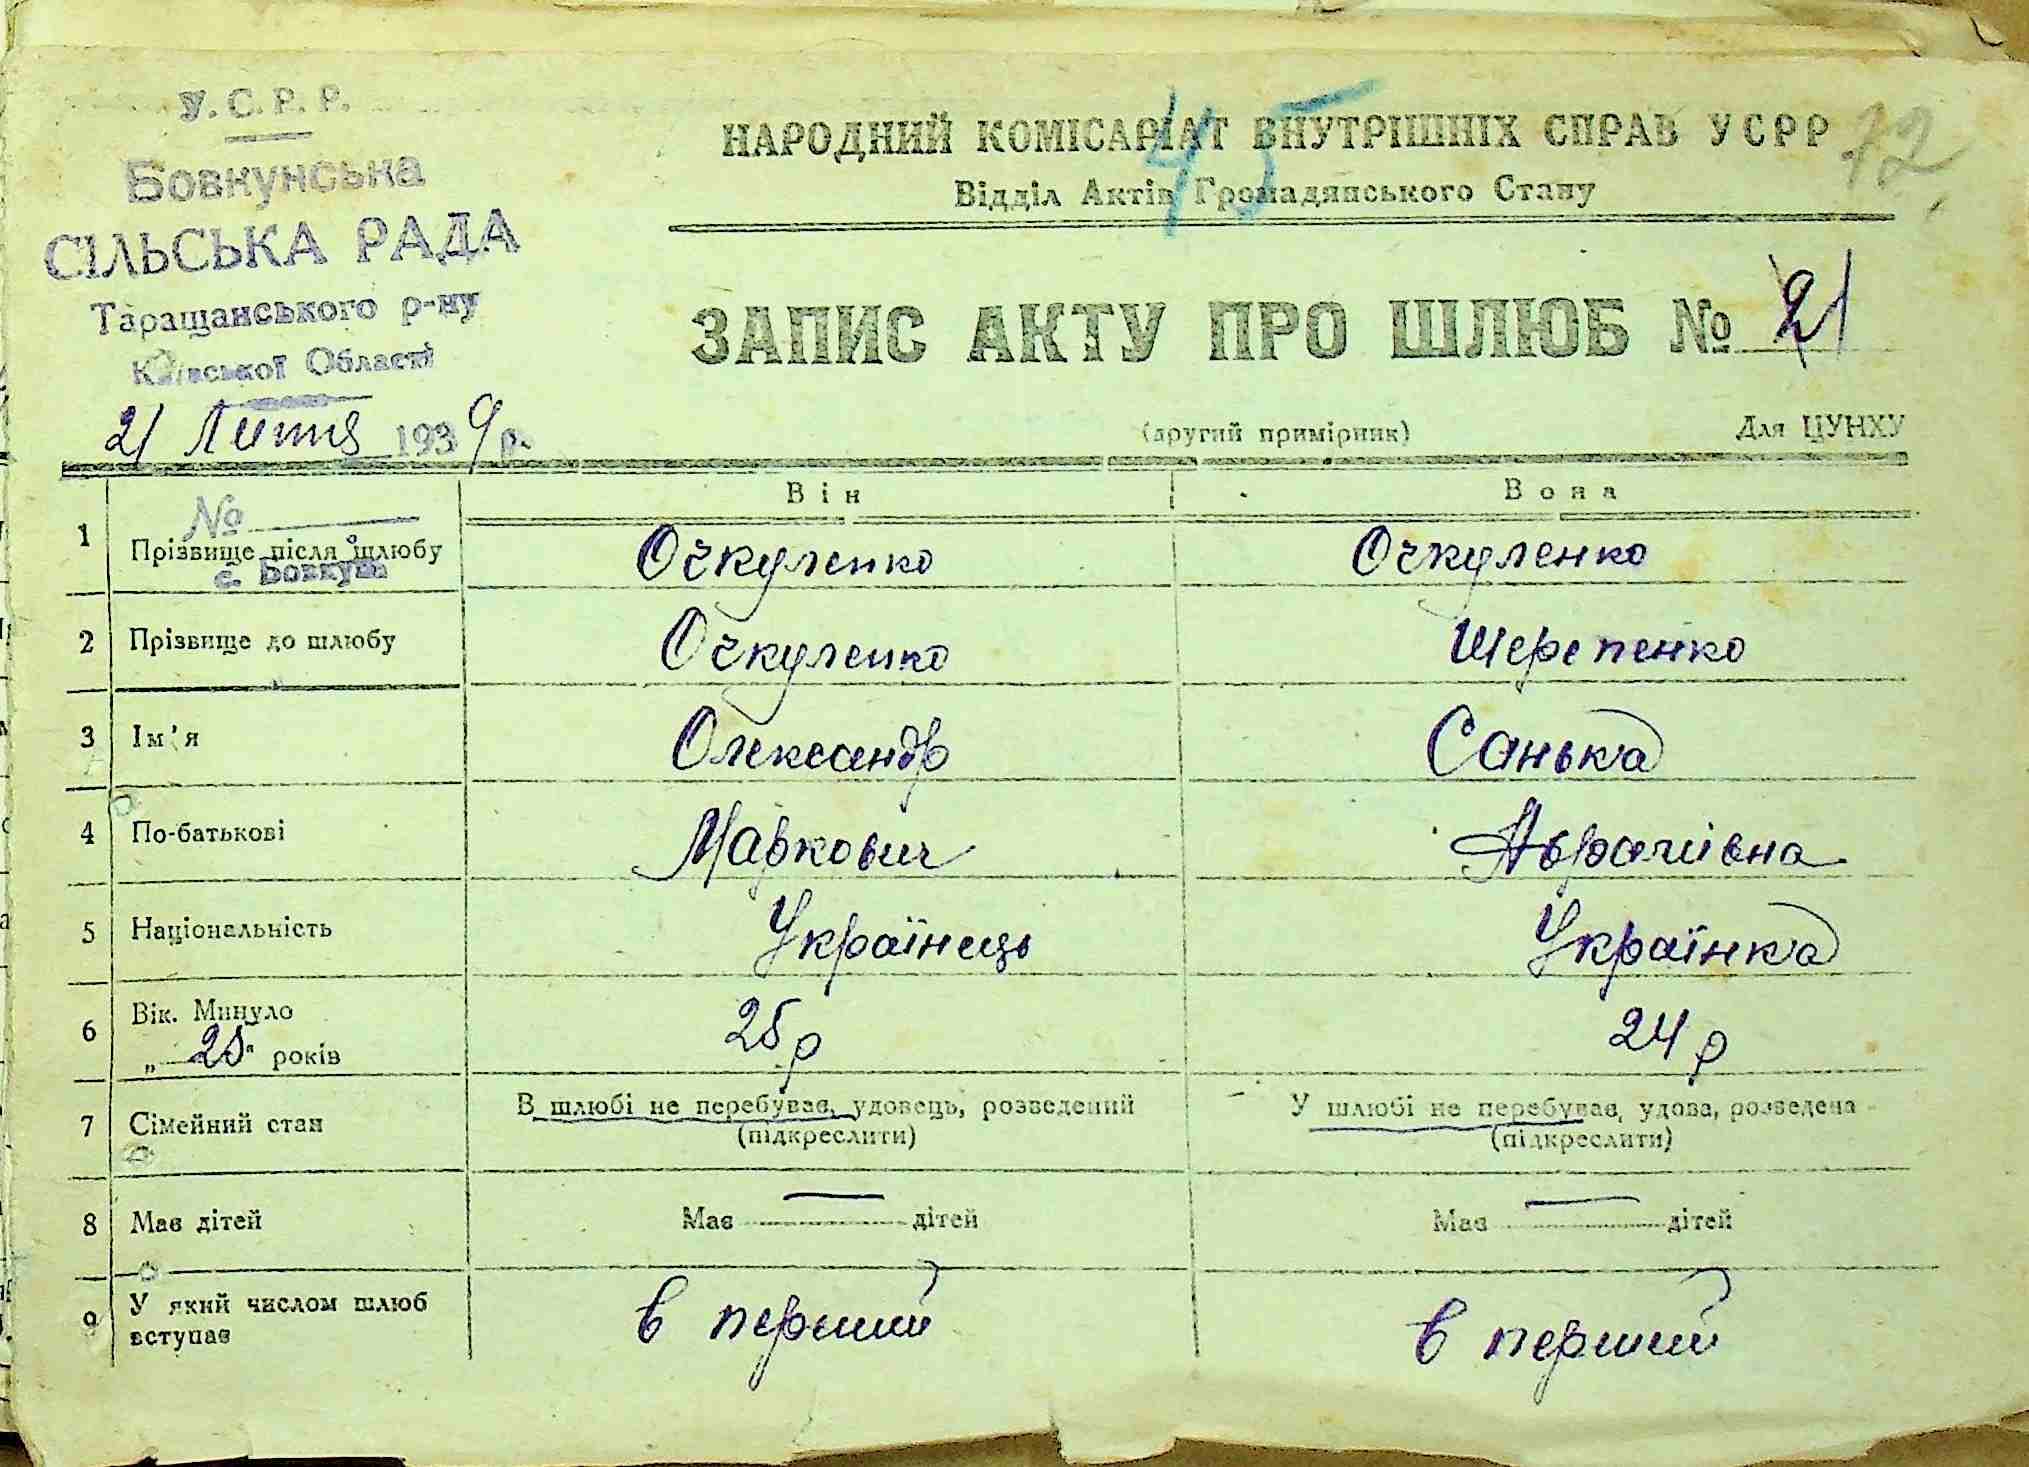 У.С.Р.Р.
Бовкунська
СІЛЬСЬКА РАДА
Таращанського р-ну
Київської Області
21 Липня 1939 р.
45
12
НАРОДНИЙ КОМІСАРІАТ ВНУТРІШНІХ СПРАВ УСРР
Відділ Актів Громадянського Стану
ЗАПИС АКТУ ПРО ШЛЮБ № 21
(другий примірник) Для ЦУНХУ
Він Вона
№
1 Прізвище після шлюбу Очкуленко Очкуленко
с. Бовкуни
2 Прізвище до шлюбу Очкуленко Шерепенко
3 Ім'я Олександр Санька
4 По-батькові Маркович Аврамівна
5 Національність Українець Українка
6 Вік. Минуло 25 р 24 р
„ 25 " років
7 Сімейний стан В шлюбі не перебував, удовець, розведений У шлюбі не перебуває, удова, розведена
(підкреслити) (підкреслити)
8 Має дітей Має — дітей Має — дітей
9 У який числом шлюб вступає в перший в перший